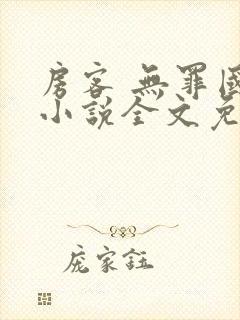 房客 無罪國
小說全文免
龐家鈺